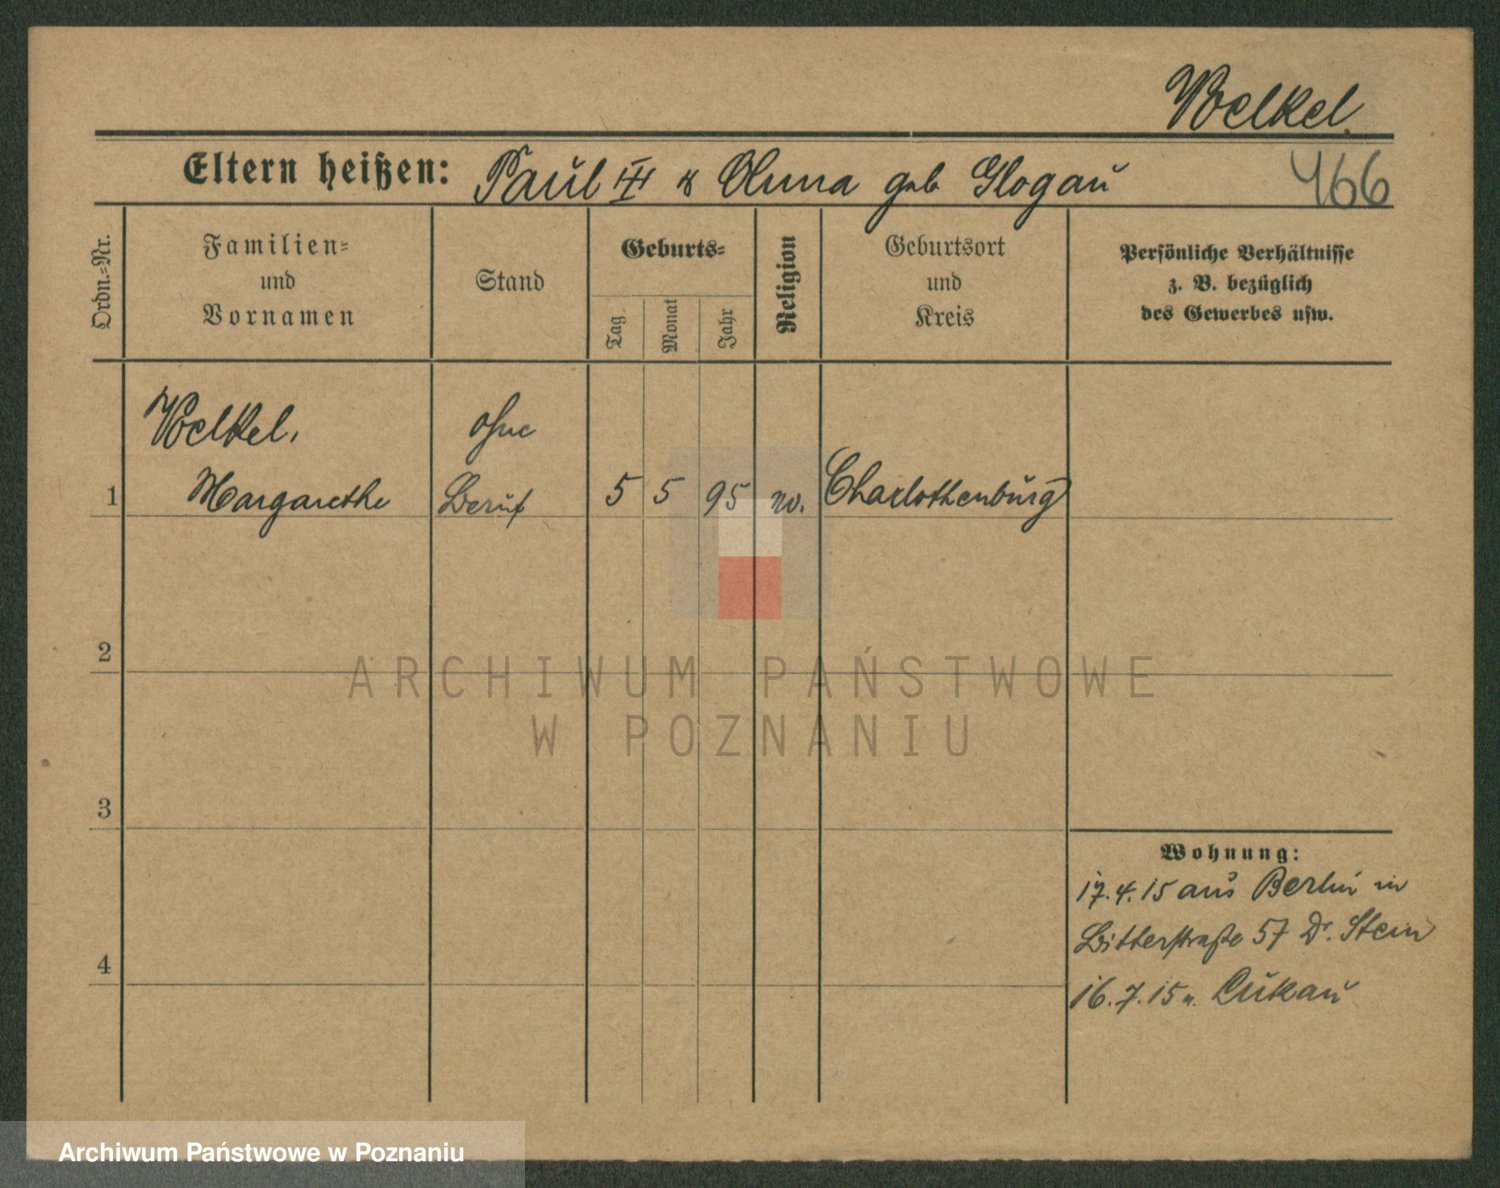 Voelkel.
Eltern heißen: Paul III & Anna geb Glogau
466
Ordn.-Nr.
Familien-
und
Vornamen
Stand
Geburts-
Tag
Monat
Jahr
Religion
Geburtsort
und
Kreis
Persönliche Verhältnisse
z. B. bezüglich
des Gewerbes usw.
Voelkel,
Margarethe
ohne
Beruf
1
5
5
95
Charlottenburg
2
ARCHIWUM PAŃSTWOWE
W POZNANIU
3
4
Wohnung:
17.4.15 aus Berlin in
Bitterstraße 57 Dr. Stein
16.7.15 n. Lukau
Archiwum Państwowe w Poznaniu